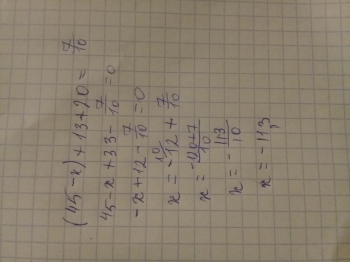 (45-x)+13+20=7/10
45-x+33-7/10=0
-x+12-7/10=0
x=-12+7/10
x=-120+7/10
x=-113/10
x=-11,3